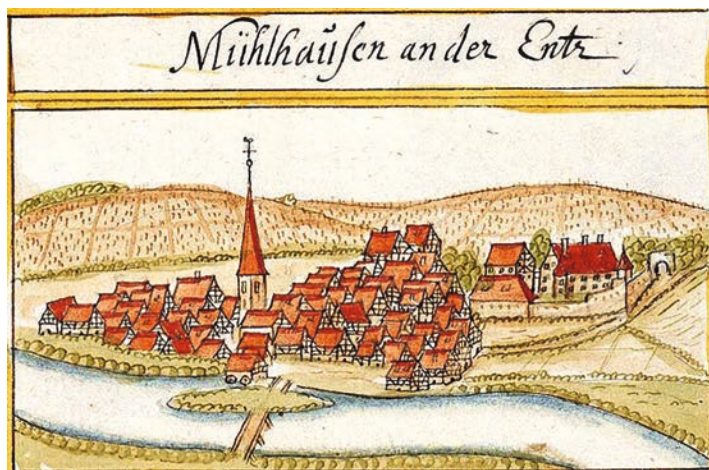 Mühlhaüsen an der Entz